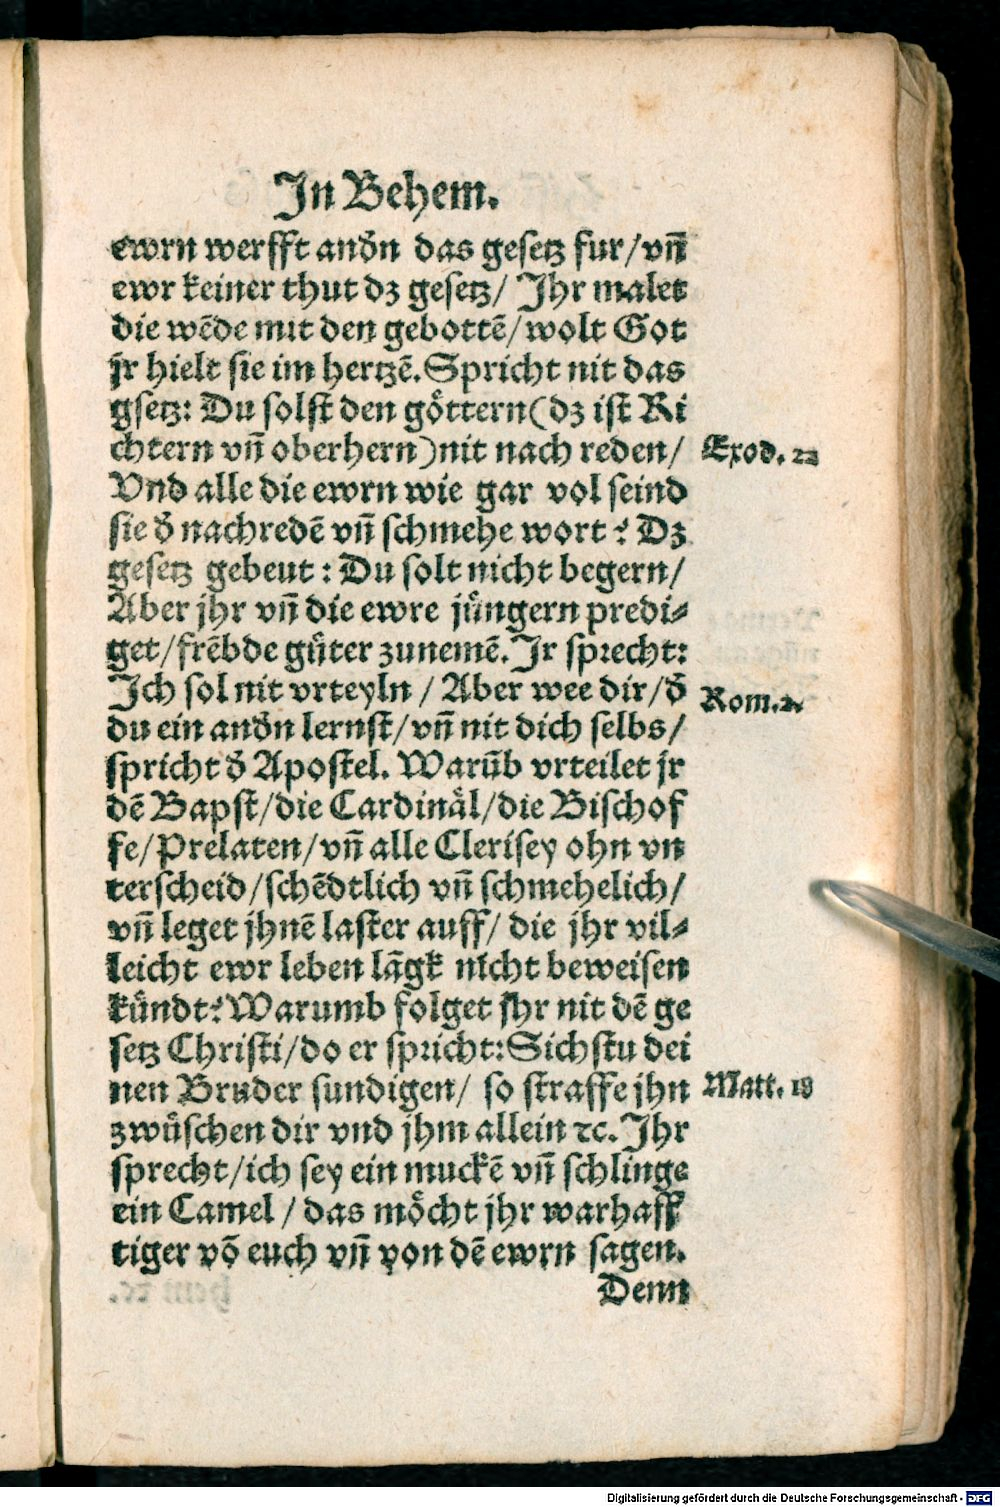 In Behem.
ewrn werfft andn̄ das gesetz fur/vnn̄
ewr keiner thut dz gesetz/ Ihr malet
die wēde mit den gebottē/wolt Got
jr hielt sie im hertzē. Spricht nit das
gsetz: Du solst den göttern(dz ist Ri
chtern vnn̄ oberhern)nit nach reden/
Exod. 22
Vnd alle die ewrn wie gar vol seind
sie d̄ nachredē vnn̄ schmehe wort? Dz
gesetz gebeut: Du solt nicht begern/
Aber jhr vnn̄ die ewre jüngern predi⸗
get/frēbde güter zunemē. Ir sprecht:
Ich sol nit vrteyln / Aber wee dir/d̄
Rom. 2.
du ein andn̄ lernst/vnn̄ nit dich selbs/
spricht d̄ Apostel. Warūb vrteilet jr
dē Bapst/die Cardinäl/die Bischof
fe/Prelaten/vnn̄ alle Clerisey ohn vn
terscheid/schēdtlich vnn̄ schmehelich/
vnn̄ leget jhnē laster auff/ die jhr vil⸗
leicht ewr leben lāgk nicht beweisen
kündt? Warumb folget jhr nit dē ge
setz Christi/do er spricht: Sichstu dei
nen Bruder sundigen/ so straffe jhn
Matt. 18
zwüschen dir vnd jhm allein ꝛc. Ihr
sprecht/ich sey ein muckē vnn̄ schlinge
ein Camel / das möcht jhr warhaff
tiger vō euch vnn̄ von dē ewrn sagen.
Denn
Digitalisierung gefördert durch die Deutsche Forschungsgemeinschaft - DFG